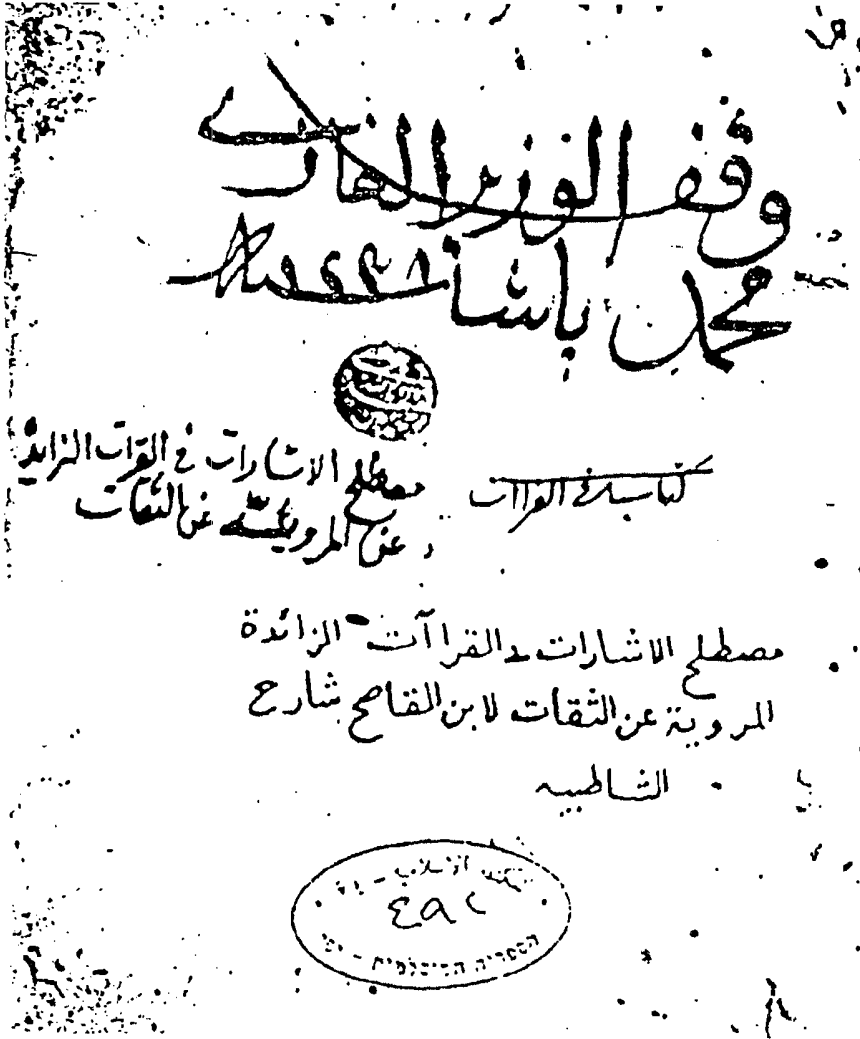 وقف الوزير الغازي
محمد باشا ١٢٣٨
كتاب في القراات
مصطلح الاشارات في القرات الزايد
عن المرويه عن الثقات
مصطلح الاشارات في القراآت الزائدة
المروية عن الثقات لابن القاصح شارح
الشاطبيه
٤٩٢
הספריה המוסלמית - יפו